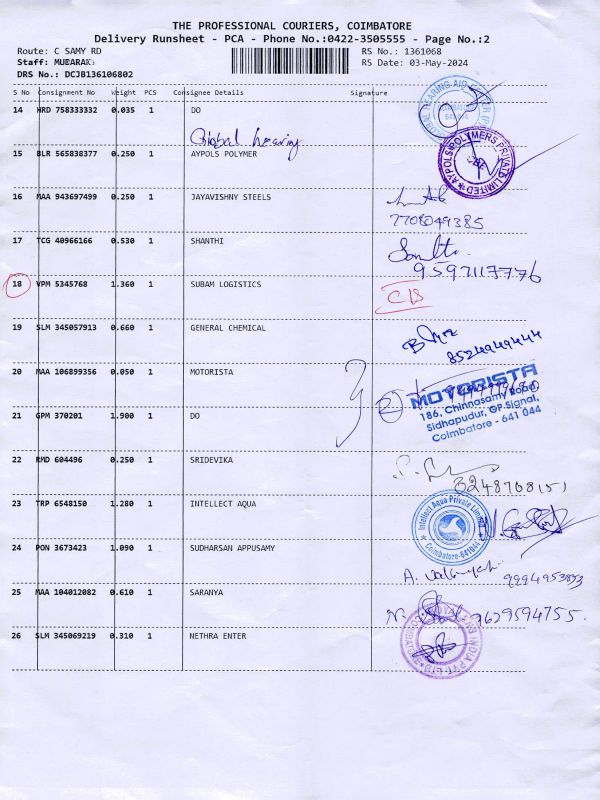 THE PROFESSIONAL COURIERS, COIMBATORE
Delivery Runsheet - PCA - Phone No.:0422-3505555 - Page No.:2
Route: C SAMY RD RS No.: 1361068
Staff: MUBARAK RS Date: 03-May-2024
DRS No.: DCJB136106802
S No Consignment No Weight PCS Consignee Details Signature
14 HRD 758333332 0.035 1 DO
Global hearing
15 BLR 565838377 0.250 1 AYPOLS POLYMER
AYPOLS POLYMERS PRIVATE LIMITED
16 MAA 943697499 0.250 1 JAYAVISHNY STEELS
7708049385
17 TCG 40966166 0.530 1 SHANTHI
9597117776
18 VPM 5345768 1.360 1 SUBAM LOGISTICS
19 SLM 345057913 0.660 1 GENERAL CHEMICAL
8524949444
20 MAA 106899356 0.050 1 MOTORISTA
MOTORISTA
186, Chinnasamy Road,
Sidhapudur, GP.Signal,
Coimbatore - 641 044
21 GPM 370201 1.900 1 DO
22 RMD 604496 0.250 1 SRIDEVIKA
23 TRP 6548150 1.280 1 INTELLECT AQUA
Intellect Aqua Private Limited
Coimbatore-641044
24 PON 3673423 1.090 1 SUDHARSAN APPUSAMY
25 MAA 104012082 0.610 1 SARANYA
9629594755
26 SLM 345069219 0.310 1 NETHRA ENTER